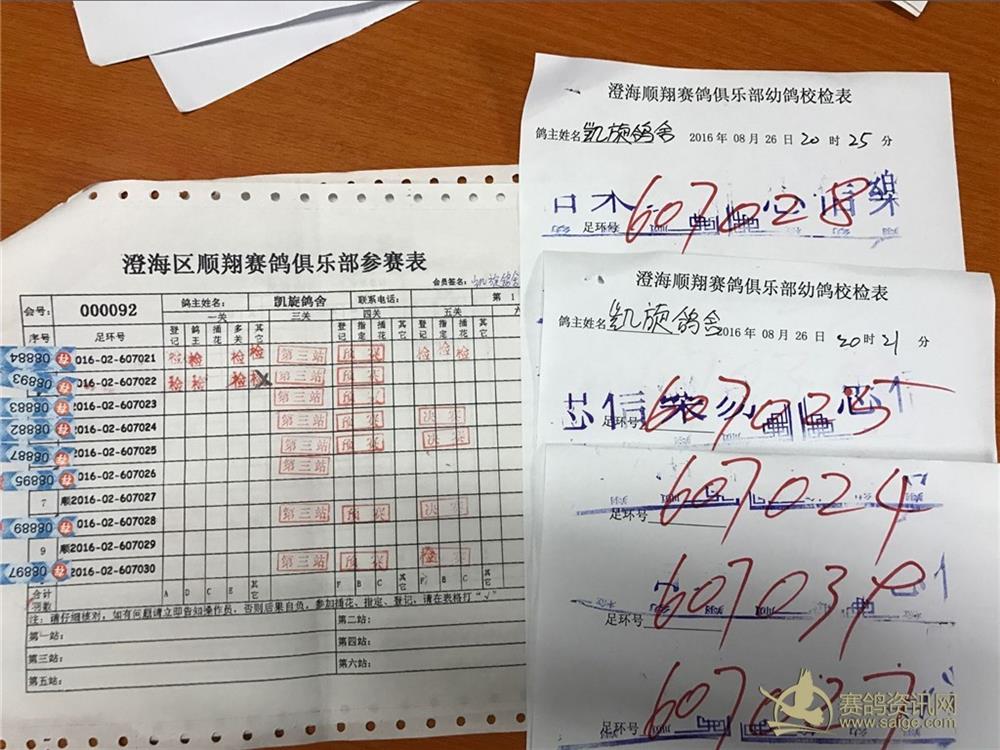 澄海区顺翔赛鸽俱乐部参赛表
会员签名：凯旋鸽舍
会号： 000092 鸽主姓名： 凯旋鸽舍 联系电话： 第 1
序号 足环号 一关 三关 四关 五关
登记 鸽王 插花 多关 其它 登记 指定 插花 其它 登记 指定 插花 其它
08884 016-02-607021 检 检 检 检 第三站 预赛 检 检 检
08893 016-02-607022 检 检 检 检 第三站 预赛
08883 2016-02-607023 第三站
08882 2016-02-607024 第三站 预赛 决赛
08887 2016-02-607025 第三站 预赛 决赛
08895 2016-02-607026 第三站
7 顺2016-02-607027
08889 016-02-607028 第三站 预赛 决赛
9 顺2016-02-607029
08897 2016-02-607030 第三站 预赛 检 赛
合计 A D C E 其它 F B C 其它 F B C 其它
羽数
注：请仔细核对，如有问题请立即告知操作员，否则后果自负，参加插花、指定、登记，请在表格打“√”
第一站： 第二站：
第三站： 第四站：
第五站： 第六站：
澄海顺翔赛鸽俱乐部幼鸽校检表
鸽主姓名 凯旋鸽舍 2016 年 08 月 26 日 20 时 25 分
足环号 607028
澄海顺翔赛鸽俱乐部幼鸽校检表
鸽主姓名 凯旋鸽舍 2016 年 08 月 26 日 20 时 21 分
足环号 607025
607024
足环号
607034
足环号
607037
足环号
赛鸽资讯网
www.saige.com